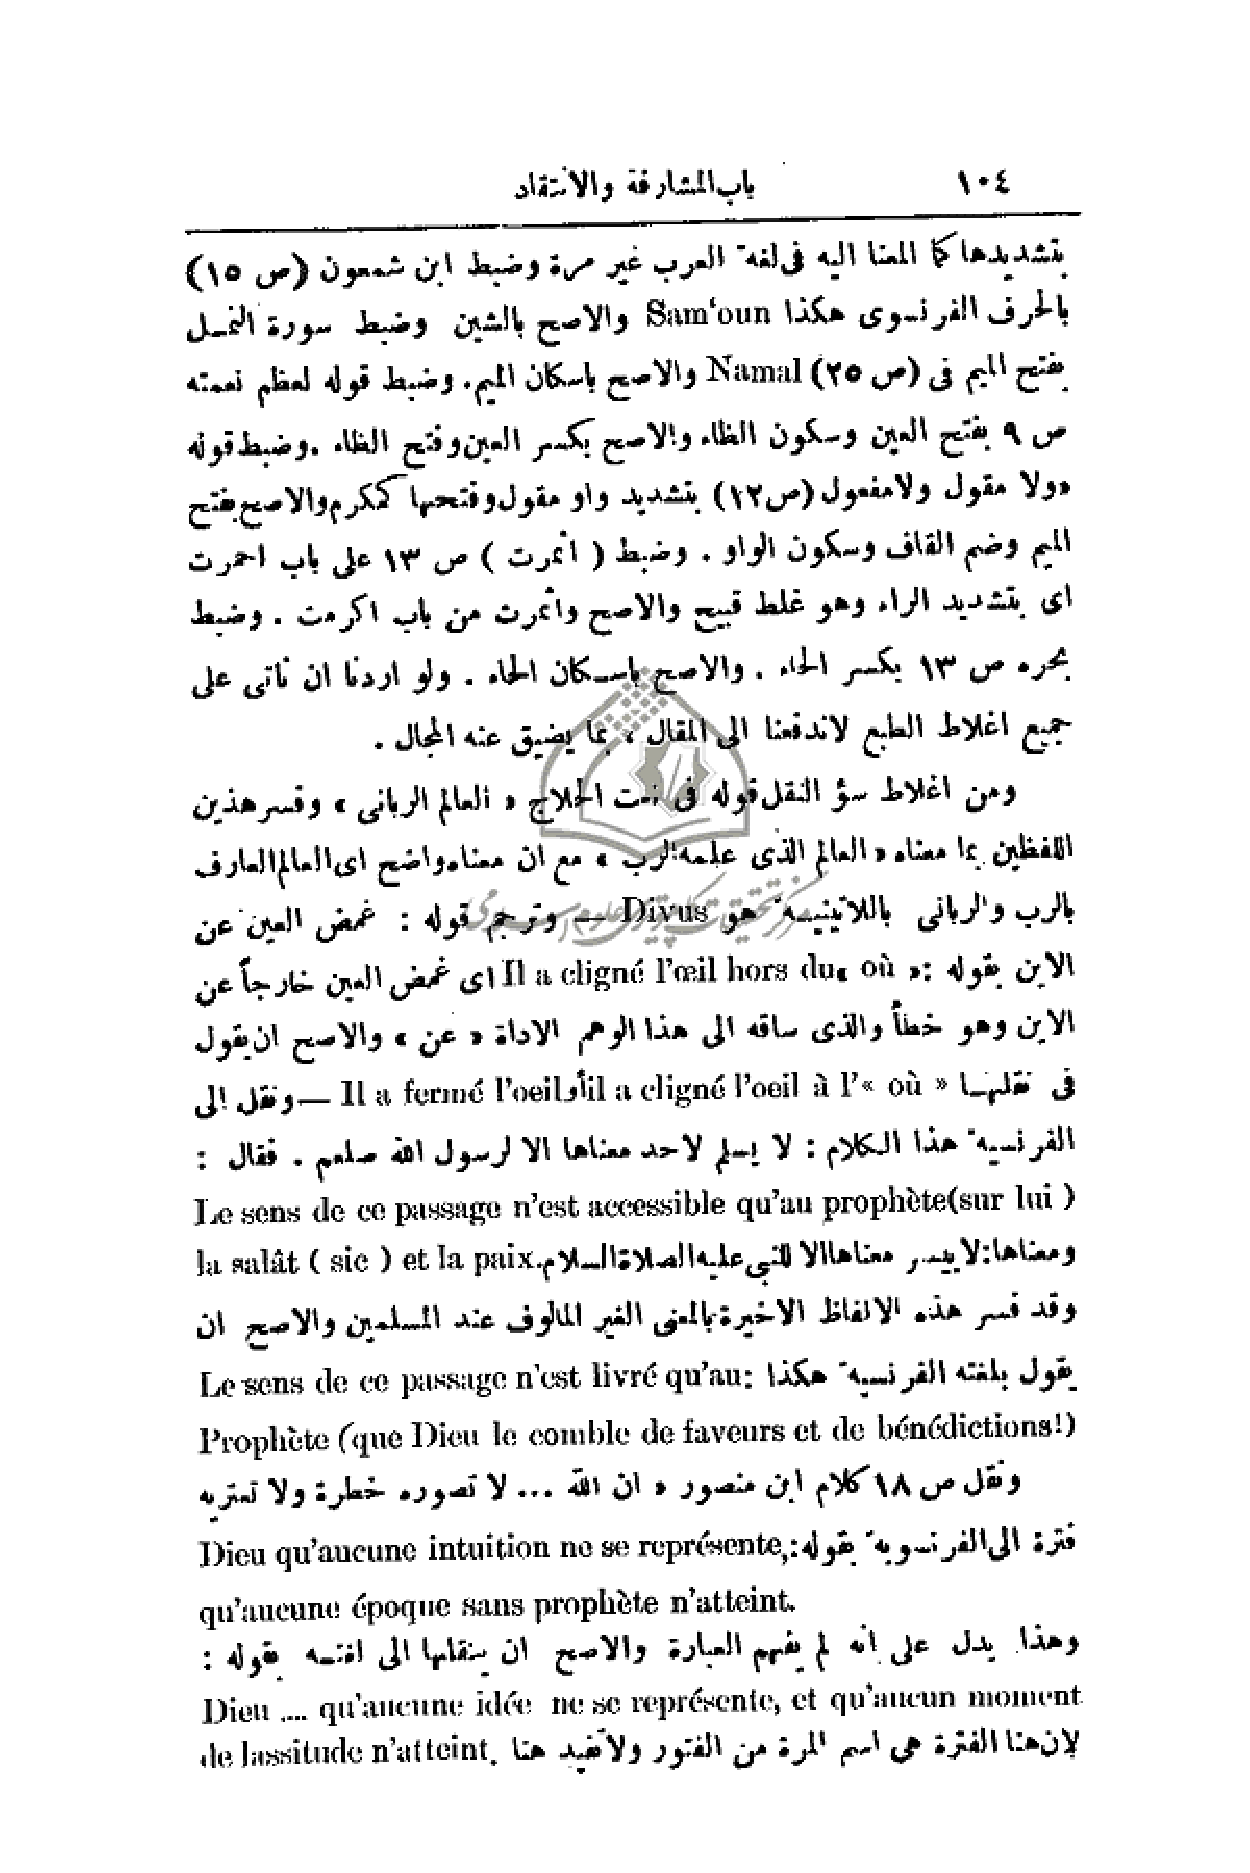 ١٠٤ باب المشارفة والانتقاد
بتشديدها كما المعنا اليه فى لغة العرب غير مرة وضبط ابن شمعون (ص ١٥)
بالحرف الفرنسوى هكذا Sam‘oun والاصح بالشين وضبط سورة النمل
بفتح الميم فى (ص ٢٥) Namal والاصح باسكان الميم. وضبط قوله لعظم نعمته
ص ٩ بفتح العين وسكون الظاء والاصح بكسر العين وفتح الظاء . وضبط قوله
«ولا مقول ولا مفعول (ص١٢) بتشديد واو مقول وفتحها كمكرم والاصح بفتح
الميم وضم القاف وسكون الواو . وضبط ( اثمرت ) ص ١٣ على باب احمرت
اى بتشديد الراء وهو غلط قبيح والاصح واثمرت من باب اكرمت . وضبط
بحره ص ١٣ بكسر الحاء . والاصح باسكان الحاء . ولو اردنا ان ناتى على
جميع اغلاط الطبع لاندفعنا الى المقال ، بما يضيق عنه المجال .
ومن اغلاط سؤ النقل قوله فى نعت الحلاج « العالم الربانى » وفسر هذين
اللفظين بما معناه « العالم الذى علمه الرب » مع ان معناه واضح اى العالم العارف
بالرب والربانى باللاتينية هو Divus — وترجم قوله : غمض العين عن
الاين بقوله :« Il a cligné l’œil hors du« où اى غمض العين خارجاً عن
الاين وهو خطأ والذى ساقه الى هذا الوهم الاداة « عن » والاصح ان يقول
فى نقلها Il a fermé l’oeil أو il a cligné l’oeil à l’« où » — ونقل الى
الفرنسية هذا الكلام : لا يسلم لاحد معناها الا لرسول الله صلعم . فقال :
Le sens de ce passage n’est accessible qu’au prophète(sur lui )
la salât ( sic ) et la paix. ومعناها: لا يتيسر معناها الا للنبى عليه الصلاة والسلام
وقد فسر هذه الالفاظ الاخيرة بالمعنى الغير المالوف عند المسلمين والاصح ان
يقول بلغته الفرنسية هكذا :Le sens de ce passage n’est livré qu’au
Prophète (que Dieu le comble de faveurs et de bénédictions!)
ونقل ص ١٨ كلام ابن منصور « ان الله ... لا تصوره خطرة ولا تعتريه
فترة الى الفرنسوية بقوله: Dieu qu’aucune intuition ne se représente,
qu’aucune époque sans prophète n’atteint.
وهذا يدل على انه لم يفهم العبارة والاصح ان ينقلها الى لغته بقوله :
Dieu .... qu’aucune idée ne se représente, et qu’aucun moment
de lassitude n’atteint. لان هنا الفترة هى اسم المرة من الفتور ولا تفيد هنا